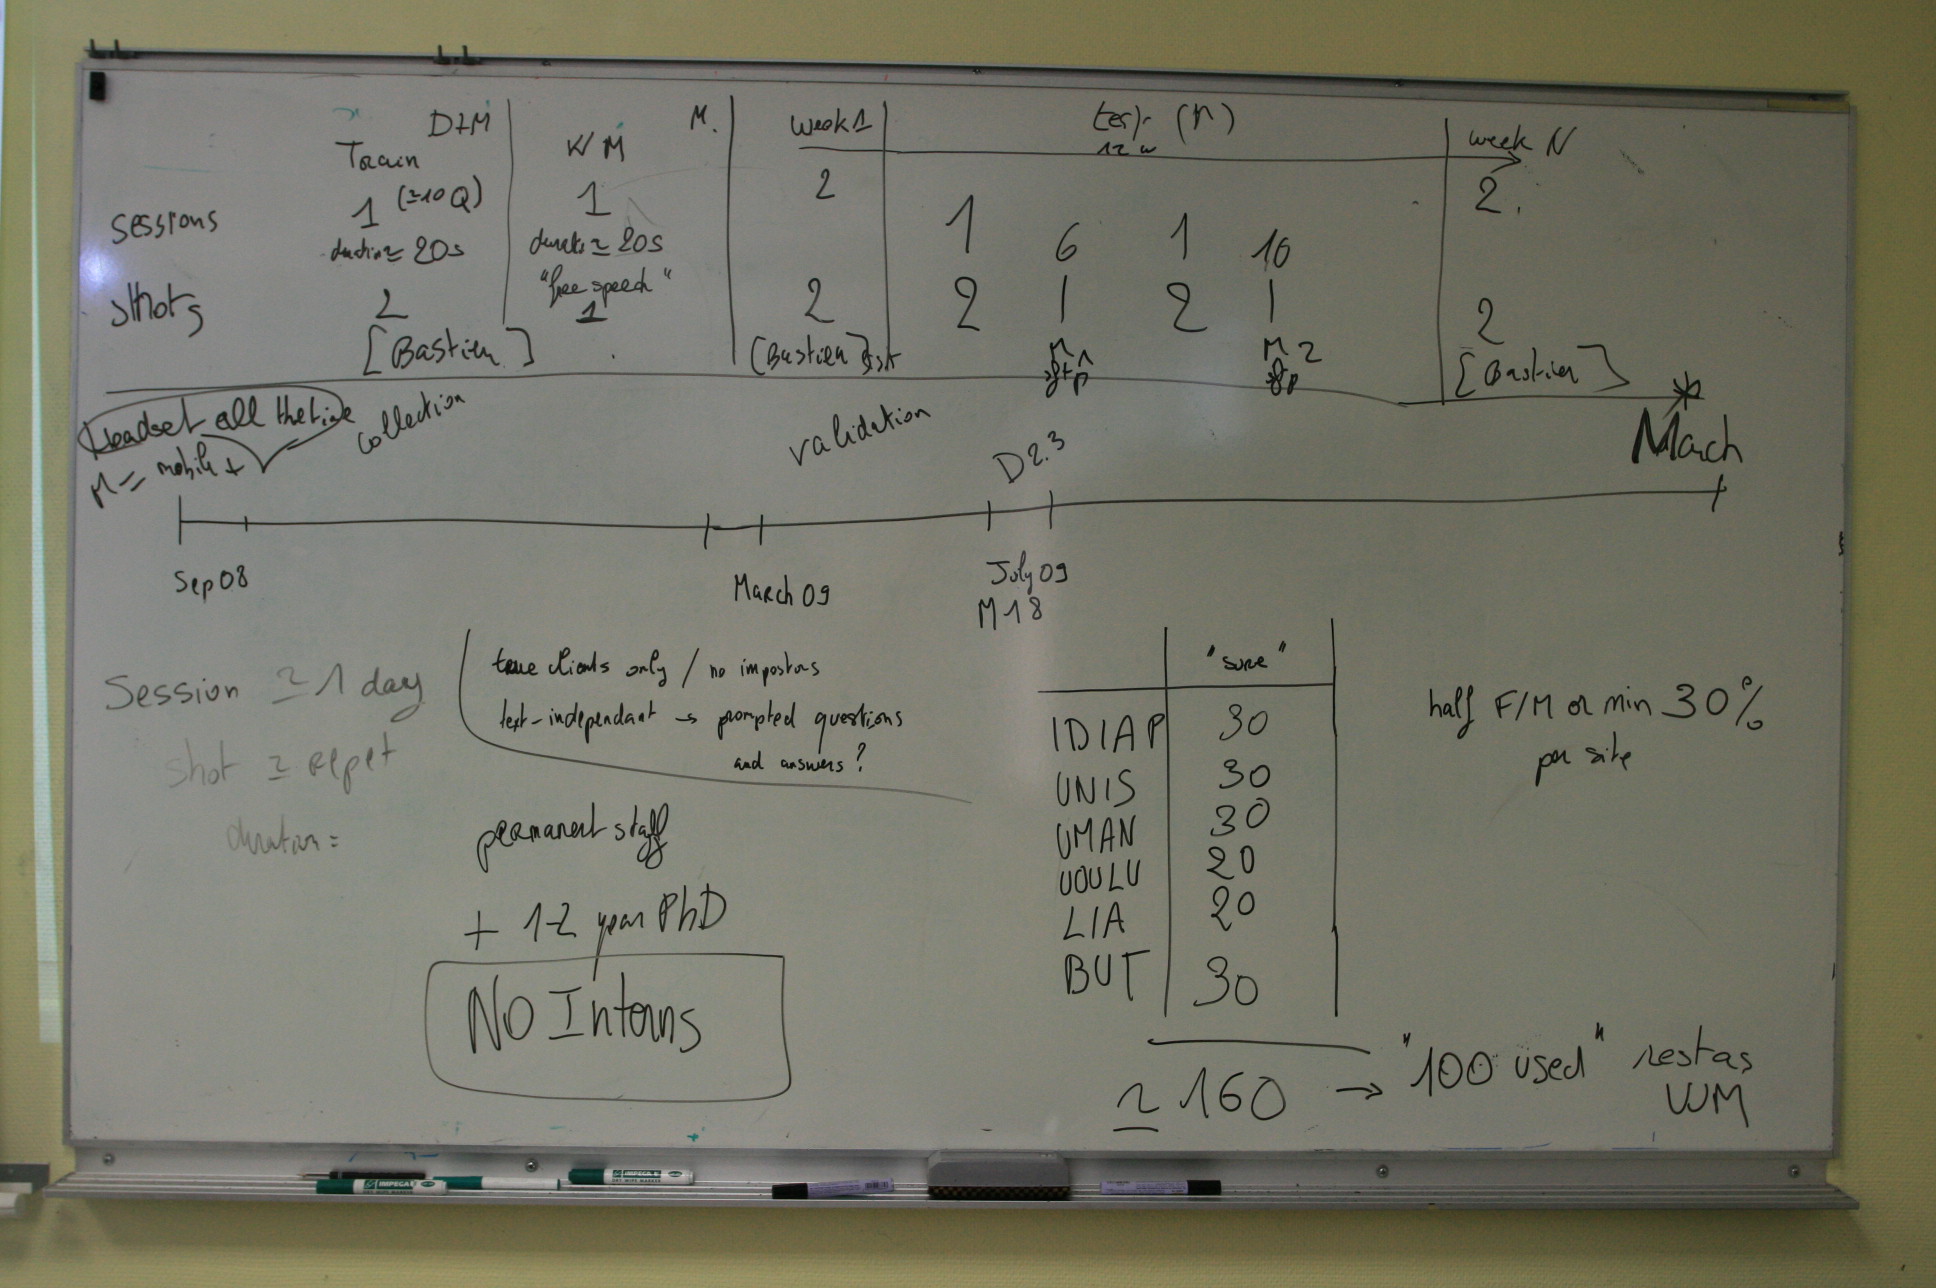 D+M
M.
week 1
test (M)
week N
Train
WM
12 w
sessions
1 (≃10 Q)
1
2
1
6
1
10
2.
duration ≃ 20s
duration ≃ 20s
"free speech"
shots
2
1
2
2
1
2
1
2
[Bastien]
[Bastien]
M 1
M 2
[Bastien]
Headset all the time
collection
M = mobile +
validation
D2.3
March
Sep 08
March 09
July 09
M18
Session ≃ 1 day
true clients only / no impostors
text-independant → prompted questions
and answers ?
shot ≃ repet
duration =
permanent staff
+ 1-2 year PhD
NO Interns
"sure"
IDIAP 30
UNIS 30
UMAN 30
UOULU 20
LIA 20
BUT 30
≃ 160 → "100 used" rest as
WM
half F/M or min 30%
per site
IMPEGA
IMPEGA